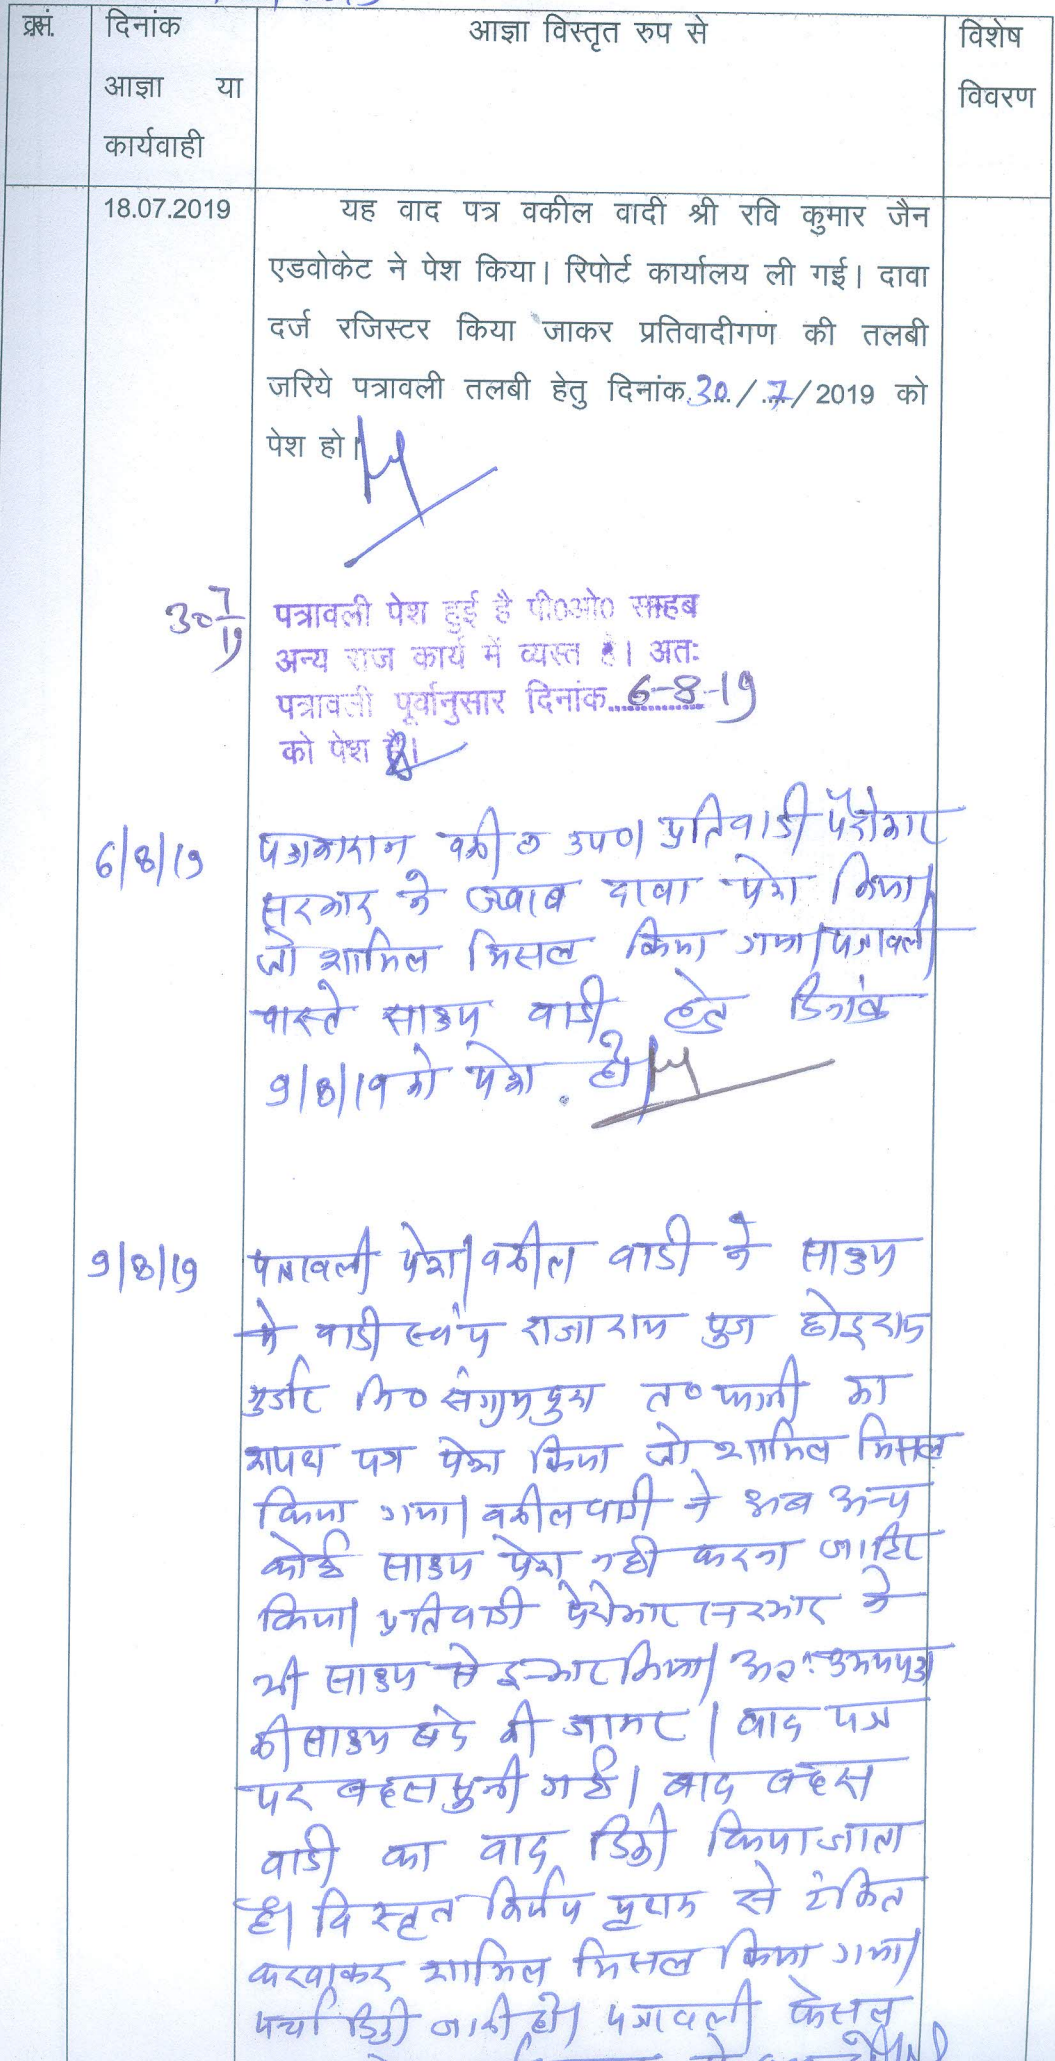 क्र.सं.
दिनांक
आज्ञा या
कार्यवाही
आज्ञा विस्तृत रुप से
विशेष
विवरण
18.07.2019
यह वाद पत्र वकील वादी श्री रवि कुमार जैन
एडवोकेट ने पेश किया। रिपोर्ट कार्यालय ली गई। दावा
दर्ज रजिस्टर किया जाकर प्रतिवादीगण की तलबी
जरिये पत्रावली तलबी हेतु दिनांक 30/7/2019 को
पेश हो।
30 7/19
पत्रावली पेश हुई है पी0ओ0 साहब
अन्य राज कार्य में व्यस्त है। अतः
पत्रावली पूर्वानुसार दिनांक 6-8-19
को पेश हो।
6/8/19
वकील उप०। प्रतिवादी पैरोकार
सरकार ने जवाब दावा पेश किया।
जो शामिल मिसल किया गया। पत्रावली
वास्ते साक्ष्य वादी हेतु दिनांक
9/8/19 को पेश हो।
9/8/19
पत्रावली पेश। वकील वादी ने साक्ष्य
में वादी स्वंय राजाराम पुत्र
गुर्जर नि० संग्रामपुरा त० फागी का
शपथ पत्र पेश किया जो शामिल मिसल
किया गया। वकील वादी ने अब अन्य
कोई साक्ष्य पेश नही करना जाहिर
किया। प्रतिवादी पैरोकार सरकार ने
भी साक्ष्य से इन्कार किया। अतः उभयपक्ष
की साक्ष्य बंद की जाकर। वाद पत्र
पर बहस सुनी गई। बाद बहस
वादी का वाद डिक्री किया जाता
है। विस्तृत निर्णय पृथक से टंकित
करवाकर शामिल मिसल किया गया।
पर्चा डिक्री जारी हो। पत्रावली फैसल